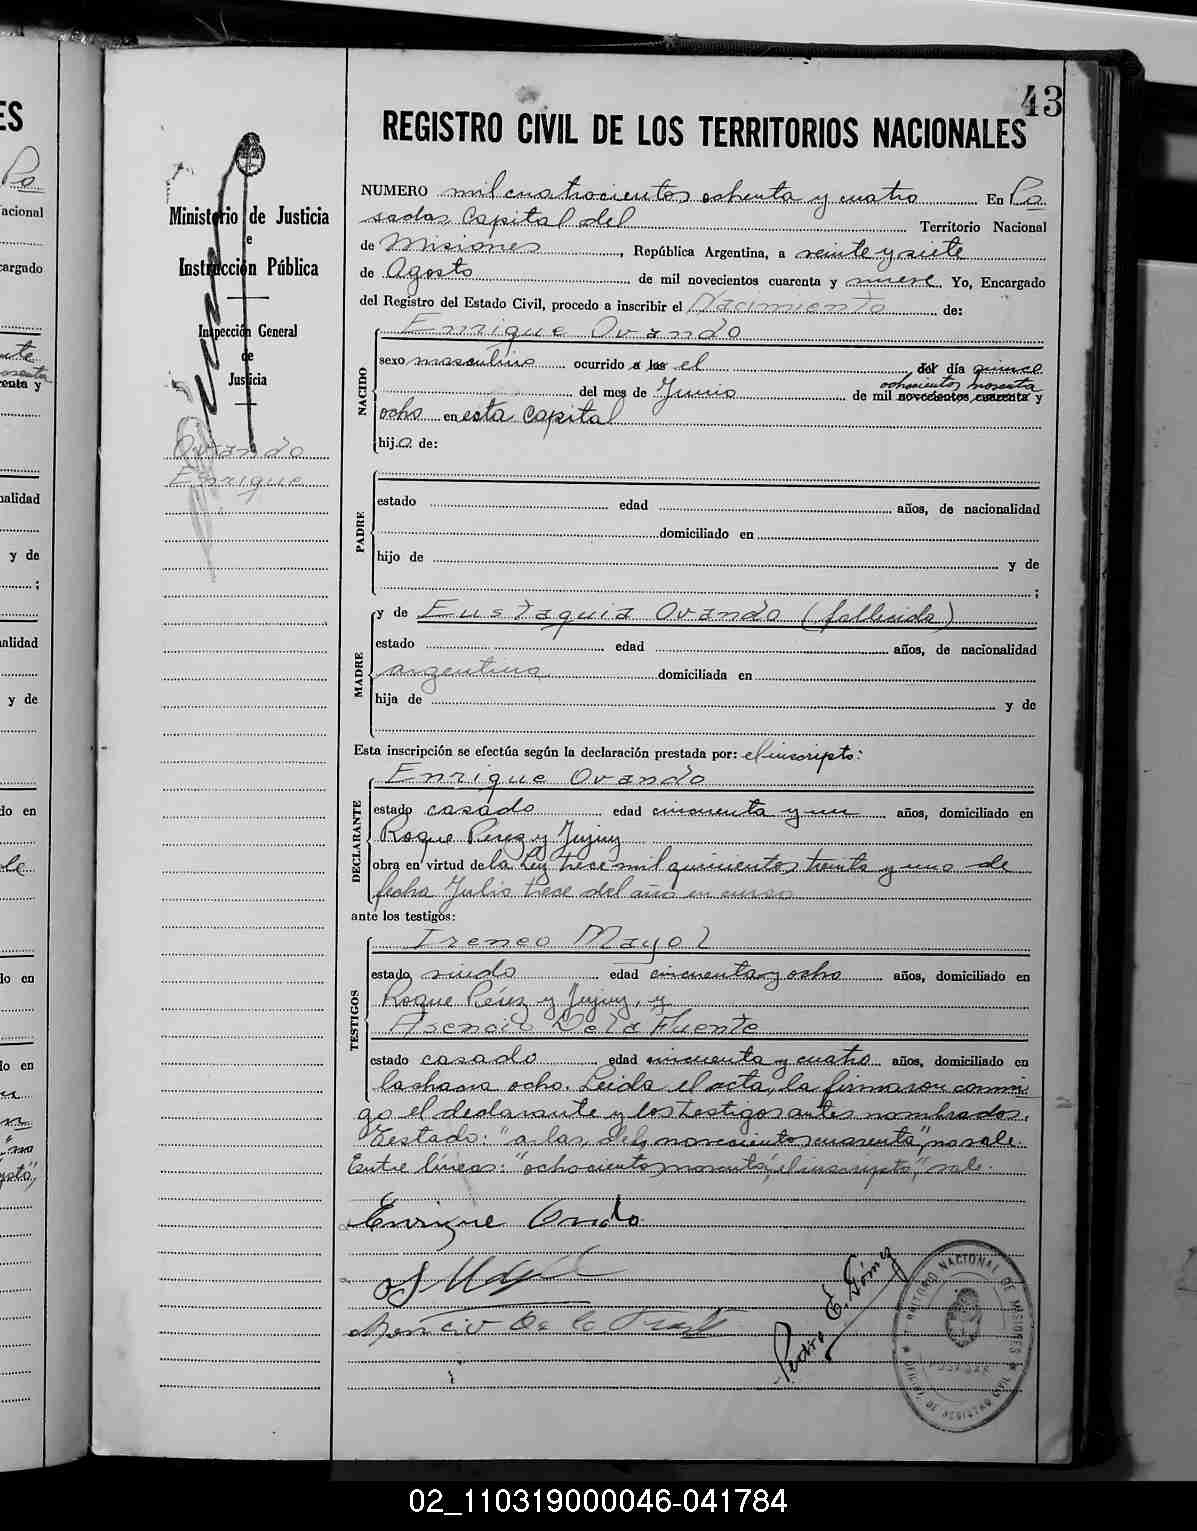 43
REGISTRO CIVIL DE LOS TERRITORIOS NACIONALES
Ministerio de Justicia
e
Instrucción Pública
Inspección General
de
Justicia
Ovando
Enrique
NUMERO mil cuatrocientos ochenta y cuatro En Po
sadas Capital del Territorio Nacional
de Misiones, República Argentina, a veinte y siete
de Agosto de mil novecientos cuarenta y nueve. Yo, Encargado
del Registro del Estado Civil, procedo a inscribir el Nacimiento de:
Enrique Ovando
NACIDO
sexo masculino ocurrido a las el del día quince
ochocientos noventa
del mes de Junio de mil novecientos cuarenta y
ocho en esta capital
hijo de:
PADRE
estado edad años, de nacionalidad
domiciliado en
hijo de y de
;
MADRE
y de Eustaquia Ovando (fallecida)
estado edad años, de nacionalidad
argentina domiciliada en
hija de y de
Esta inscripción se efectúa según la declaración prestada por: el inscripto:
DECLARANTE
Enrique Ovando
estado casado edad cincuenta y un años, domiciliado en
Roque Perez y Jujuy
obra en virtud de la Ley trece mil quinientos treinta y uno de
fecha Julio trece del año en curso
ante los testigos:
TESTIGOS
Ireneo Mayol
estado viudo edad cincuenta y ocho años, domiciliado en
Roque Pérez y Jujuy, y
Asencio De la Fuente
estado casado edad cincuenta y cuatro años, domiciliado en
la chacra ocho. Leida el acta, la firmaron conmi
go el declarante y los testigos antes nombrados.
Testado: "a las, del, novecientos cuarenta", no vale.
Entre líneas: "ochocientos noventa", "el inscripto", vale.
Enrique Ovando
Asencio De la Fuente
Pedro E. Gómez
TERRITORIO NACIONAL DE MISIONES
POSADAS
OFICINA DE REGISTRO CIVIL
02_110319000046-041784